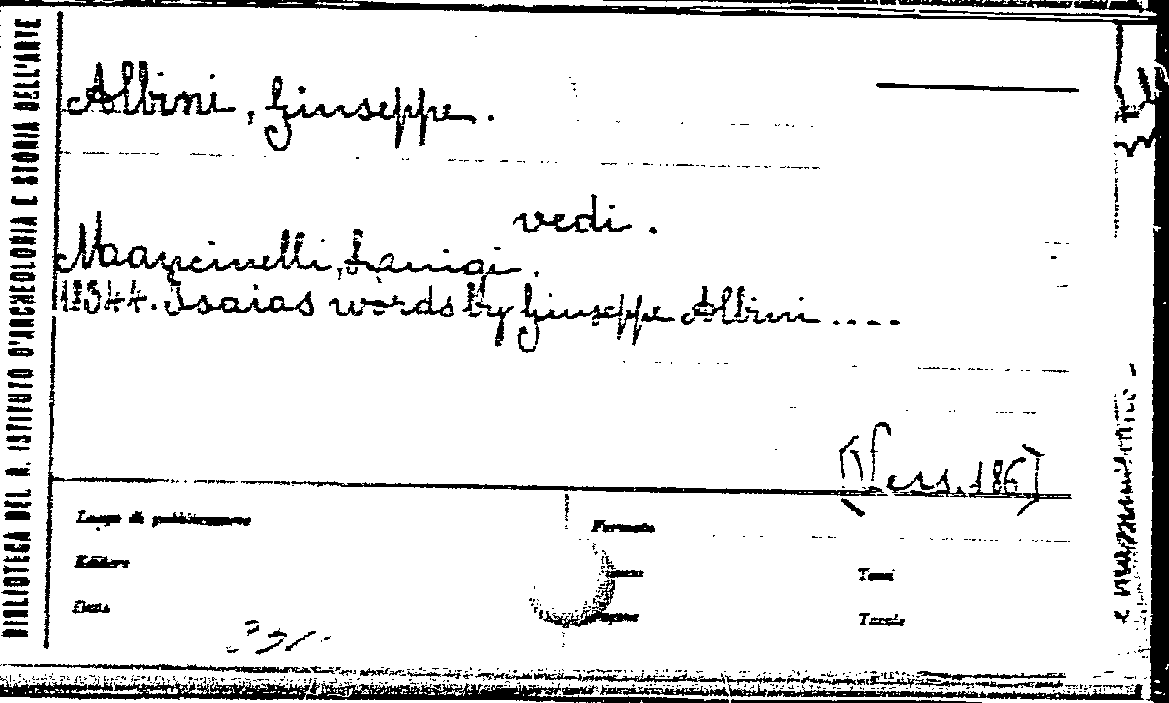 BIBLIOTECA DEL R. ISTITUTO D'ARCHEOLOGIA E STORIA DELL'ARTE
Albini, Giuseppe.
vedi.
Mancinelli, Luigi.
11544. Isaias words by Giuseppe Albini ....
[Vess. 186]
Luogo di pubblicazione
Formato
Editore
Tomi
Data
Pagine
Tavole